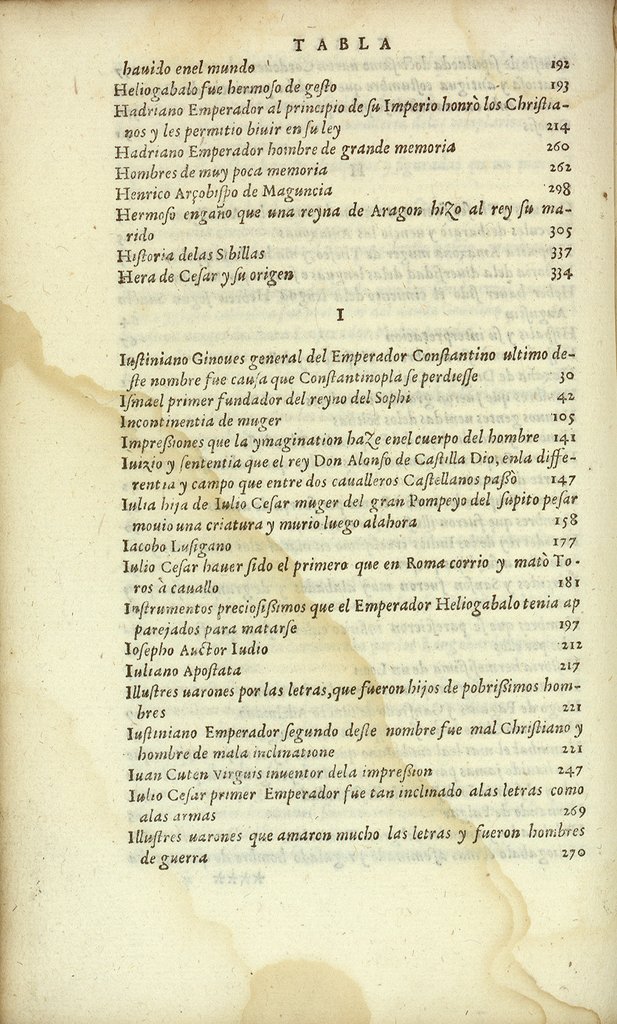 TABLA
hauido enel mundo 192
Heliogabalo fue hermoso de gesto 193
Hadriano Emperador al principio de su Imperio honrò los Christia-
nos y les permitio biuir en su ley 214
Hadriano Emperador hombre de grande memoria 260
Hombres de muy poca memoria 262
Henrico Arçobispo de Maguncia 298
Hermoso engaño que una reyna de Aragon hiZo al rey su ma-
rido 305
Historia delas Sibillas 337
Hera de Cesar y su origen 334
I
Iustiniano Ginoues general del Emperador Constantino ultimo de-
ste nombre fue causa que Constantinopla se perdiesse 30
Ismael primer fundador del reyno del Sophi 42
Incontinentia de muger 105
Impressiones que la ymagination haZe enel cuerpo del hombre 141
Iuizio y sententia que el rey Don Alonso de Castilla Dio, enla diffe-
rentia y campo que entre dos caualleros Castellanos passò 147
Iulia hija de Iulio Cesar muger del gran Pompeyo del supito pesar
mouio una criatura y murio luego alahora 158
Iacobo Lusigano 177
Iulio Cesar hauer sido el primero que en Roma corrio y matò To-
ros à cauallo 181
Instrumentos preciosissimos que el Emperador Heliogabalo tenia ap
parejados para matarse 197
Iosepho Auctor Iudio 212
Iuliano Apostata 217
Illustres uarones por las letras, que fueron hijos de pobrissimos hom-
bres 221
Iustiniano Emperador segundo deste nombre fue mal Christiano y
hombre de mala inclinatione 221
Iuan Cuten Virguis inuentor dela impression 247
Iulio Cesar primer Emperador fue tan inclinado alas letras como
alas armas 269
Illustres uarones que amaron mucho las letras y fueron hombres
de guerra 270